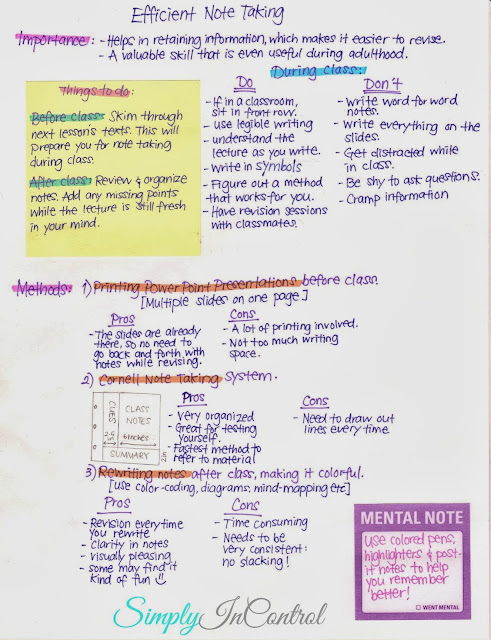 Efficient Note Taking
Importance: - Helps in retaining information, which makes it easier to revise.
- A valuable skill that is even useful during adulthood.
Things to do:
Before class: Skim through
next lesson's texts. This will
prepare you for note taking
during class.
After class: Review & organize
notes. Add any missing points
while the lecture is still fresh
in your mind.
During class:
Do
- If in a classroom,
sit in front row.
- use legible writing
- understand the
lecture as you write.
- Write in symbols
- Figure out a method
that works for you.
- Have revision sessions
with classmates.
Don't
- Write word for word
notes.
- Write everything on the
slides.
- Get distracted while
in class.
- Be shy to ask questions.
- Cramp information
Methods: 1) Printing PowerPoint Presentations before class.
[Multiple slides on one page]
Pros
- The slides are already
there, so no need to
go back and forth with
notes while revising.
Cons
- A lot of printing involved.
- Not too much writing
space.
2) Cornell Note Taking System.
CUES
2.5in
CLASS
NOTES
6inches
SUMMARY
2in
Pros
- Very organized
- Great for testing
yourself.
- Fastest method to
refer to material
Cons
- Need to draw out
lines every time
3) Rewriting notes after class, making it colorful.
[use color-coding, diagrams, mind-mapping etc]
Pros
- Revision everytime
you rewrite
- Clarity in notes
- visually pleasing
- some may find it
kind of fun
Cons
- Time consuming
- Needs to be
very consistent:
no slacking!
MENTAL NOTE
use colored pens,
highlighters & post-
it notes to help
you remember
better!
WENT MENTAL
SimplyInControl